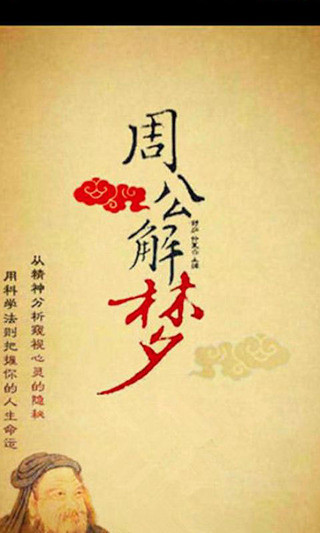 周公解梦
从精神分析窥视心灵的隐秘
用科学法则把握你的人生命运